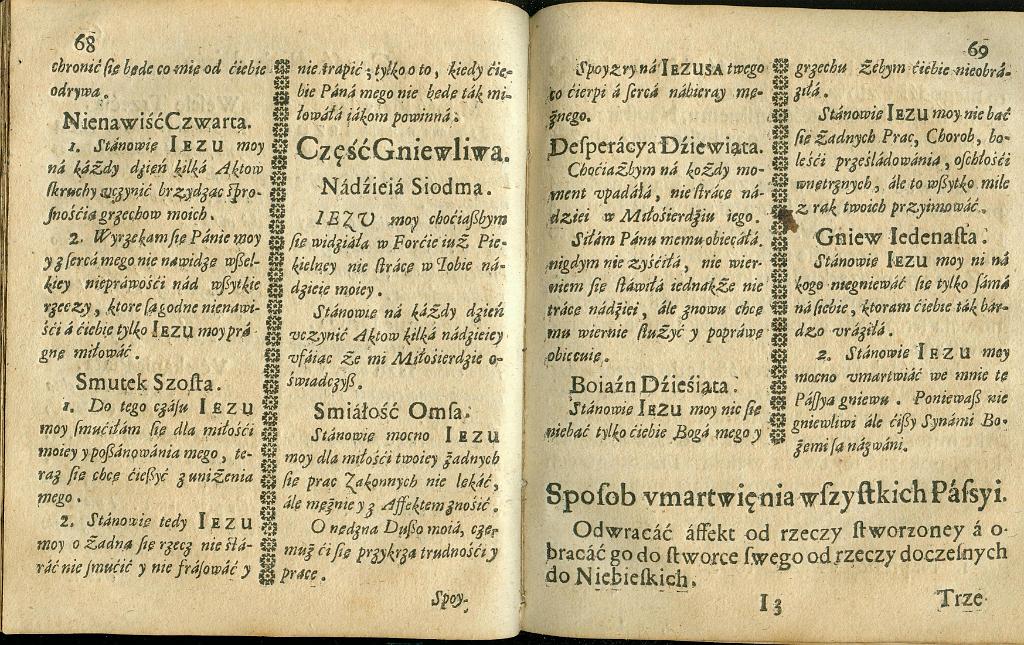 68
chronić ſię będę co mię od ćiebie
odrywa.
Nienawiść Czwarta.
1. Stánowię IEZU moy
ná káżdy dźień kilká Aktow
ſkruchy vczynić brzydząc ſpro-
ſnośćią grzechow moich.
2. Wyrzekam ſię Pánie moy
y z ſercá mego nie nawidzę wſzel-
kiey nieprawośći nád wſzytkie
rzeczy, ktore ſą godne nienawi-
śći á ćiebie tylko IEZU moy prá-
gnę miłowáć.
Smutek Szoſta.
1. Do tego czáſu IEZU
moy ſmućiłám ſię dla miłośći
moiey y poſzánowánia mego, te-
raz ſię chcę ćieſzyć z uniżenia
mego.
2. Stánowię tedy IEZU
moy o żadną ſię rzecz nie ſtá-
ráć nie ſmućić y nie fráſowáć y
nie trapić; tylko o to, kiedy ćie-
bie Páná mego nie będę ták mi-
łowáłá iákom powinná.
Część Gniewliwa.
Nádźieiá Siodma.
IEZU moy choćiaſzbym
ſię widźiáłá w Forćie iuż Pie-
kielney nie ſtrácę w Tobie ná-
dźieie moiey.
Stánowię ná káżdy dźień
vczynić Aktow kilká nádźieiey
vfáiąc że mi Miłośierdźie o-
świadczyſz.
Smiáłość Oſma.
Stánowię mocno IEZU
moy dla miłośći twoiey żadnych
ſię prac Zakonnych nie lękáć,
ále mężnie y z Affektem znośić.
O nędzna Duſzo moiá, cze-
muż ći ſię przykrzą trudnośći y
prace.
Spoy-
69
Spoyzry ná IEZUSA twego
co ćierpi á ſercá nábieray mę-
żnego.
Deſperácya Dźiewiąta.
Choćiażbym ná kożdy mo-
ment vpadáłá, nie ſtrácę ná-
dźiei w Miłośierdźiu iego.
Siłám Pánu memu obiecáłá.
nigdym nie zyśćiłá, nie wier-
niem ſię ſtáwiłá iednákże nie
trácę nádźiei, ále znowu chcę
mu wiernie ſłużyć y popráwę
obiecuię.
Boiaźn Dźieśiąta.
Stánowię IEZU moy nic ſię
niebáć tylko ćiebie Bogá mego y
grzechu żebym ćiebie nieobrá-
źiłá.
Stánowię IEZU moy nie bać
ſię żadnych Prac, Chorob, bo-
leśći prześládowánia, oſchłośći
wnętrznych, ále to wſzytko mile
z rąk twoich przyimowáć.
Gniew Iedenaſta.
Stánowię IEZU moy ni ná
kogo niegniewáć ſię tylko ſámá
ná ſiebie, ktoram ćiebie ták bár-
dzo vráźiłá.
2. Stánowię IEZU moy
mocno vmartwiáć we mnie tę
Páſſyą gniewu. Ponieważ nie
gniewliwi ále ćiſzy Synámi Bo-
żemi ſą názwáni.
Spoſob vmartwięnia wſzyſtkich Páſsyi.
Odwracáć áffekt od rzeczy ſtworzoney á o-
bracáć go do ſtworce ſwego od rzeczy doczeſnych
do Niebieſkich.
I 3
Trze-